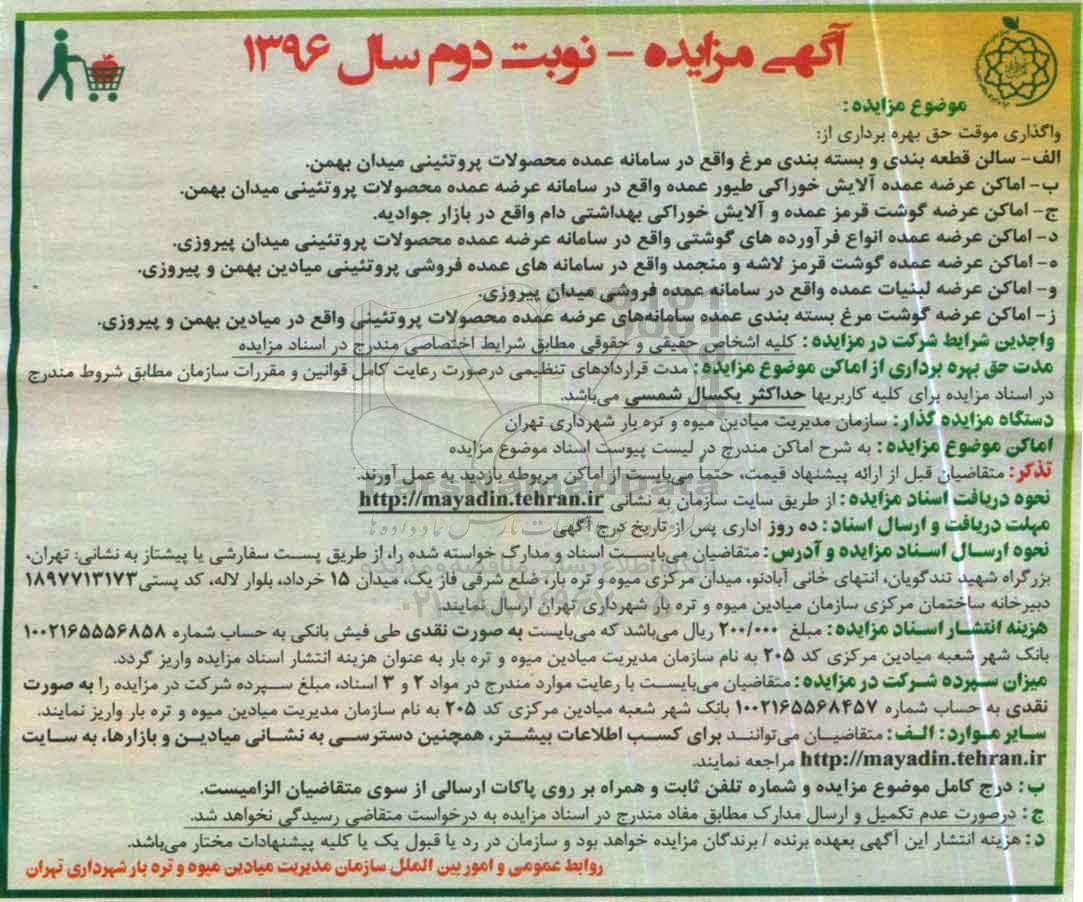 آگهی مزایده - نوبت دوم سال ۱۳۹۶
موضوع مزایده :
واگذاری موقت حق بهره برداری از:
الف- سالن قطعه بندی و بسته بندی مرغ واقع در سامانه عمده محصولات پروتئینی میدان بهمن.
ب- اماکن عرضه عمده آلایش خوراکی طیور عمده واقع در سامانه عرضه عمده محصولات پروتئینی میدان بهمن.
ج- اماکن عرضه گوشت قرمز عمده و آلایش خوراکی بهداشتی دام واقع در بازار جوادیه.
د- اماکن عرضه عمده انواع فرآورده های گوشتی واقع در سامانه عرضه عمده محصولات پروتئینی میدان پیروزی.
ه- اماکن عرضه عمده گوشت قرمز لاشه و منجمد واقع در سامانه های عمده فروشی پروتئینی میادین بهمن و پیروزی.
و- اماکن عرضه لبنیات عمده واقع در سامانه عمده فروشی میدان پیروزی.
ز- اماکن عرضه گوشت مرغ بسته بندی عمده سامانه‌های عرضه عمده محصولات پروتئینی واقع در میادین بهمن و پیروزی.
واجدین شرایط شرکت در مزایده : کلیه اشخاص حقیقی و حقوقی مطابق شرایط اختصاصی مندرج در اسناد مزایده
مدت حق بهره برداری از اماکن موضوع مزایده : مدت قراردادهای تنظیمی درصورت رعایت کامل قوانین و مقررات سازمان مطابق شروط مندرج
در اسناد مزایده برای کلیه کاربریها حداکثر یکسال شمسی می‌باشد.
دستگاه مزایده گذار: سازمان مدیریت میادین میوه و تره بار شهرداری تهران
اماکن موضوع مزایده : به شرح اماکن مندرج در لیست پیوست اسناد موضوع مزایده
تذکر: متقاضیان قبل از ارائه پیشنهاد قیمت، حتماً می‌بایست از اماکن مربوطه بازدید به عمل آورند.
نحوه دریافت اسناد مزایده : از طریق سایت سازمان به نشانی http://mayadin.tehran.ir
مهلت دریافت و ارسال اسناد : ده روز اداری پس از تاریخ درج آگهی
نحوه ارسال اسناد مزایده و آدرس : متقاضیان می‌بایست اسناد و مدارک خواسته شده را، از طریق پست سفارشی یا پیشتاز به نشانی: تهران،
بزرگراه شهید تندگویان، انتهای خانی آبادنو، میدان مرکزی میوه و تره بار، ضلع شرقی فاز یک، میدان ۱۵ خرداد، بلوار لاله، کد پستی۱۸۹۷۷۱۳۱۷۳
دبیرخانه ساختمان مرکزی سازمان میادین میوه و تره بار شهرداری تهران ارسال نمایند.
هزینه انتشار اسناد مزایده : مبلغ ۲۰۰/۰۰۰ ریال می‌باشد که می‌بایست به صورت نقدی طی فیش بانکی به حساب شماره ۱۰۰۲۱۶۵۵۵۶۸۵۸
بانک شهر شعبه میادین مرکزی کد ۲۰۵ به نام سازمان مدیریت میادین میوه و تره بار به عنوان هزینه انتشار اسناد مزایده واریز گردد.
میزان سپرده شرکت در مزایده : متقاضیان می‌بایست با رعایت موارد مندرج در مواد ۲ و ۳ اسناد، مبلغ سپرده شرکت در مزایده را به صورت
نقدی به حساب شماره ۱۰۰۲۱۶۵۵۶۸۴۵۷ بانک شهر شعبه میادین مرکزی کد ۲۰۵ به نام سازمان مدیریت میادین میوه و تره بار واریز نمایند.
سایر موارد : الف : متقاضیان می‌توانند برای کسب اطلاعات بیشتر، همچنین دسترسی به نشانی میادین و بازارها، به سایت
http://mayadin.tehran.ir مراجعه نمایند.
ب : درج کامل موضوع مزایده و شماره تلفن ثابت و همراه بر روی پاکات ارسالی از سوی متقاضیان الزامیست.
ج : درصورت عدم تکمیل و ارسال مدارک مطابق مفاد مندرج در اسناد مزایده به درخواست متقاضی رسیدگی نخواهد شد.
د : هزینه انتشار این آگهی بعهده برنده / برندگان مزایده خواهد بود و سازمان در رد یا قبول یک یا کلیه پیشنهادات مختار می‌باشد.
روابط عمومی و امور بین الملل سازمان مدیریت میادین میوه و تره بار شهرداری تهران